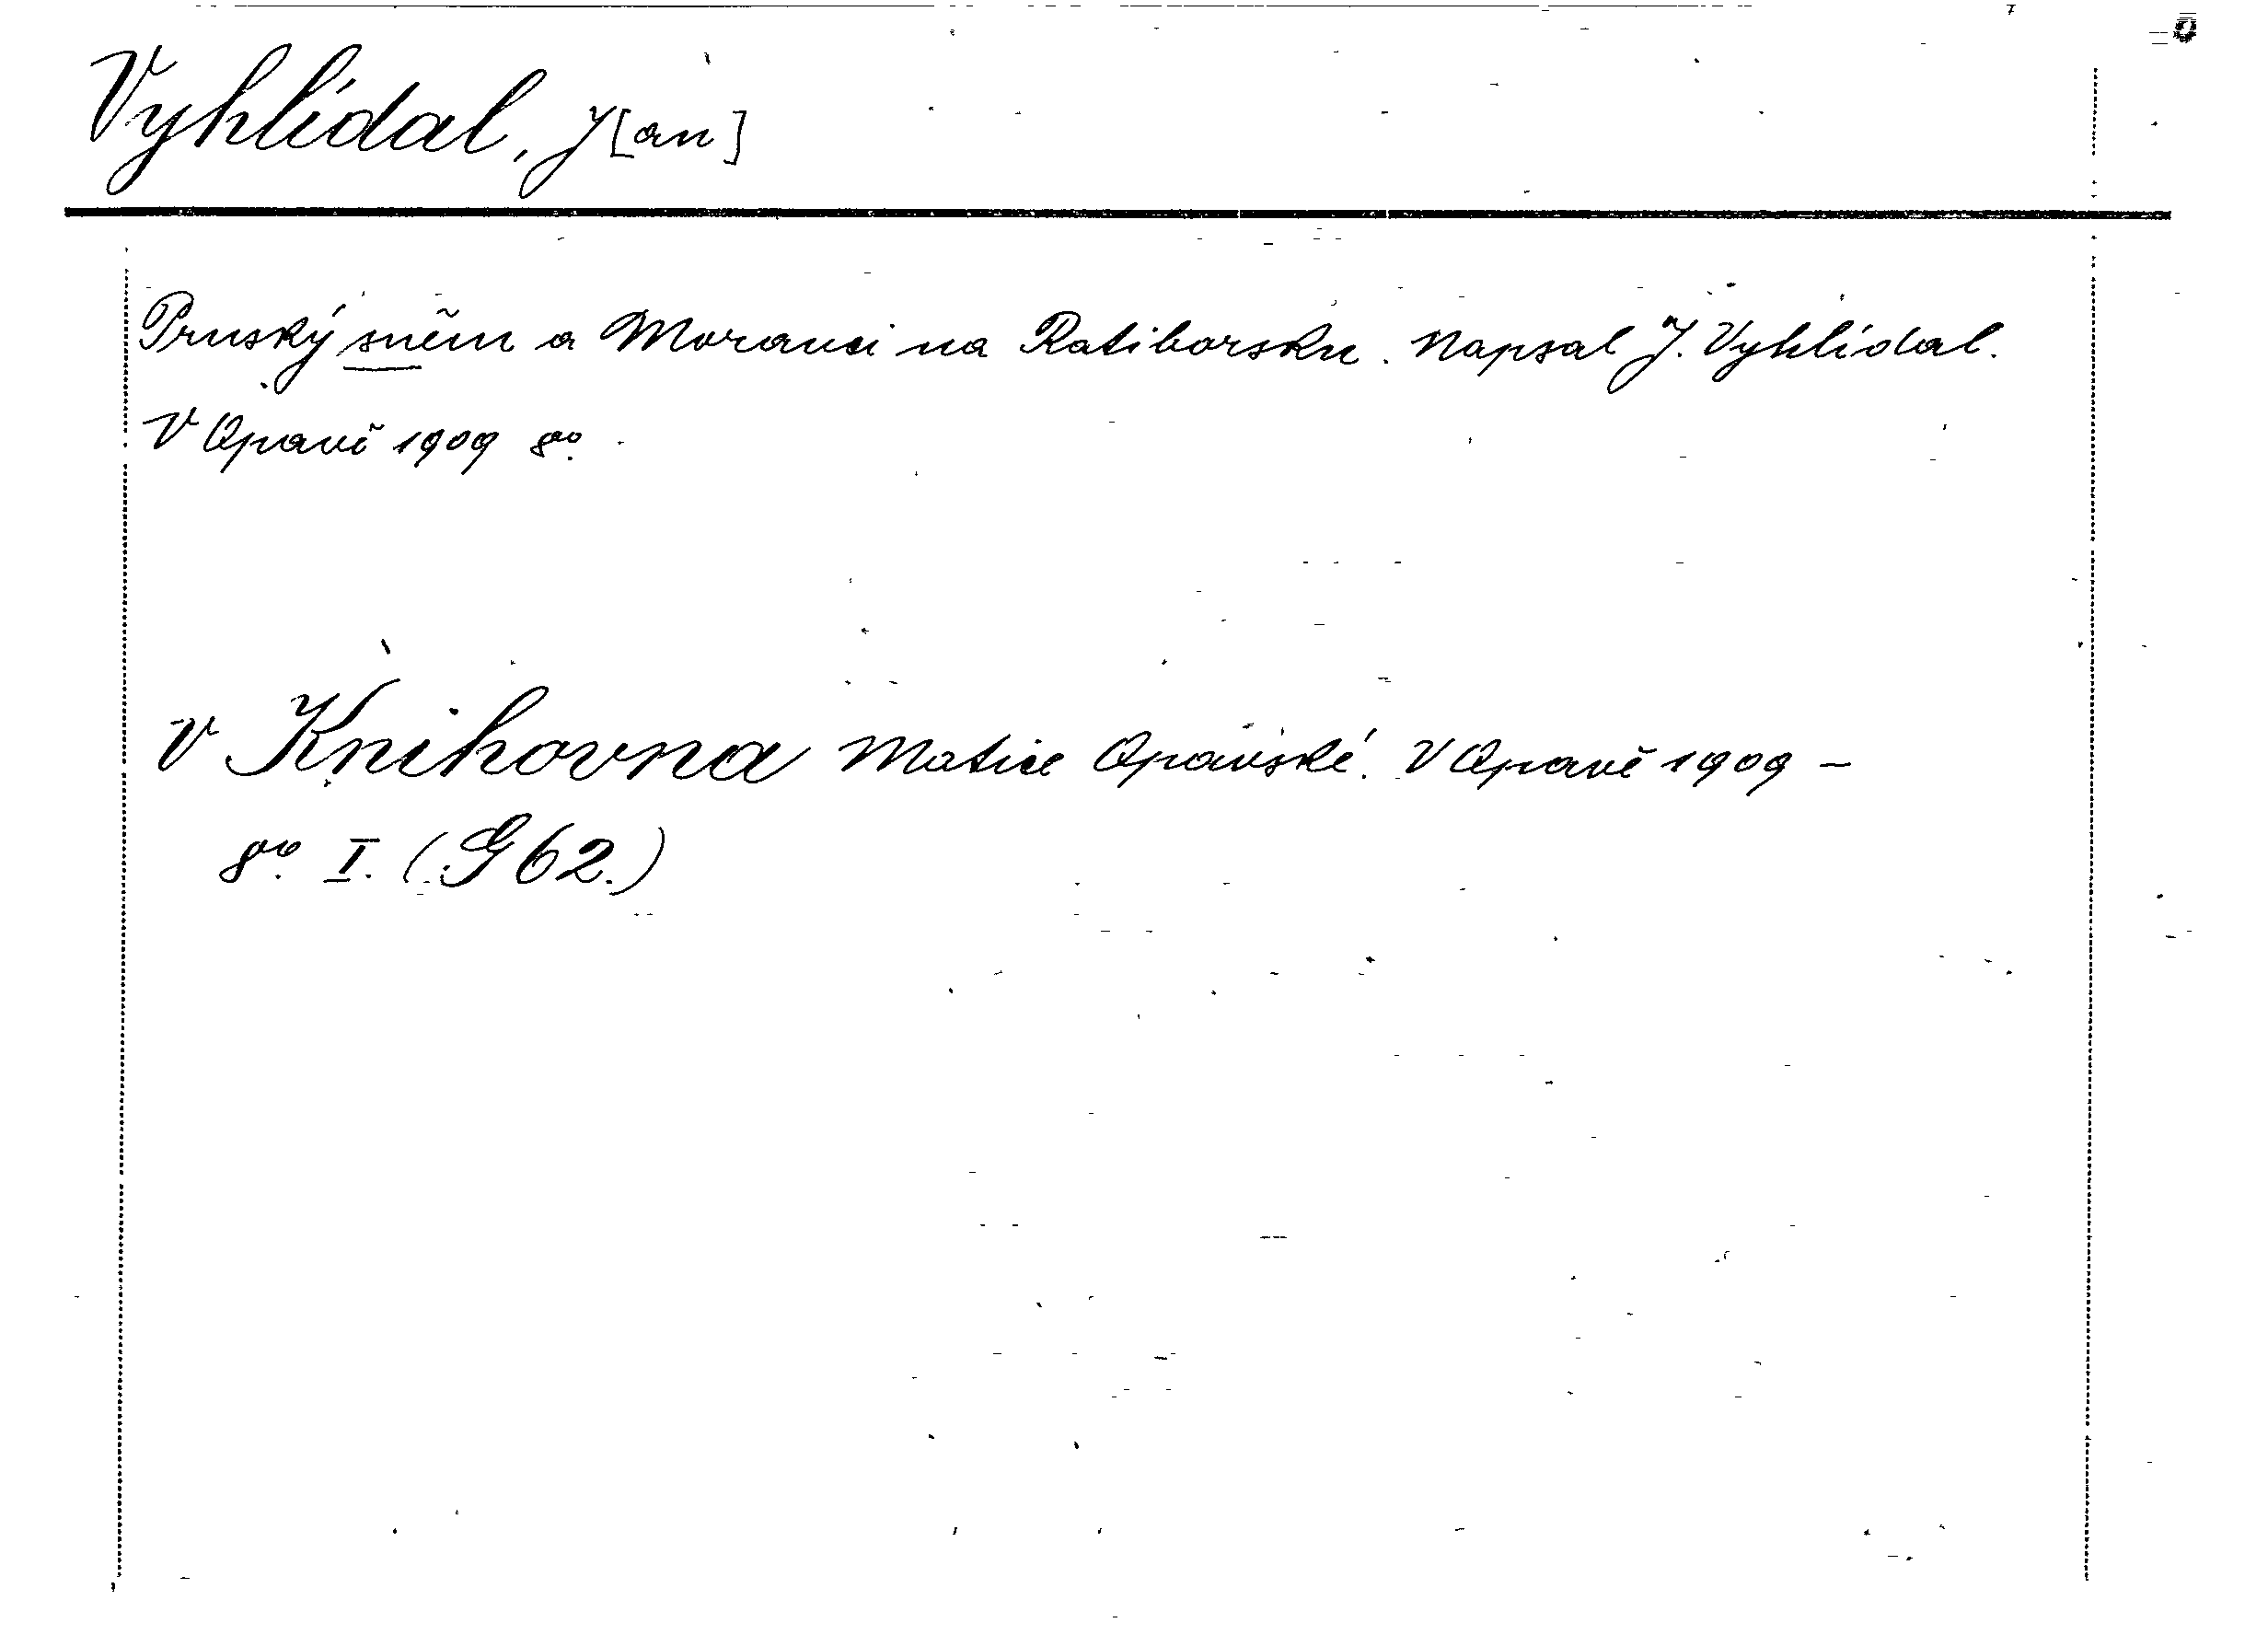 Vyhlídal, J[an]
Pruský sněm a Moravci na Ratiborsku. Napsal J. Vyhlídal.
V Opavě 1909 8º.
V Knihovna Matice Opavské. V Opavě 1909 –
8º. I. (G 62.)